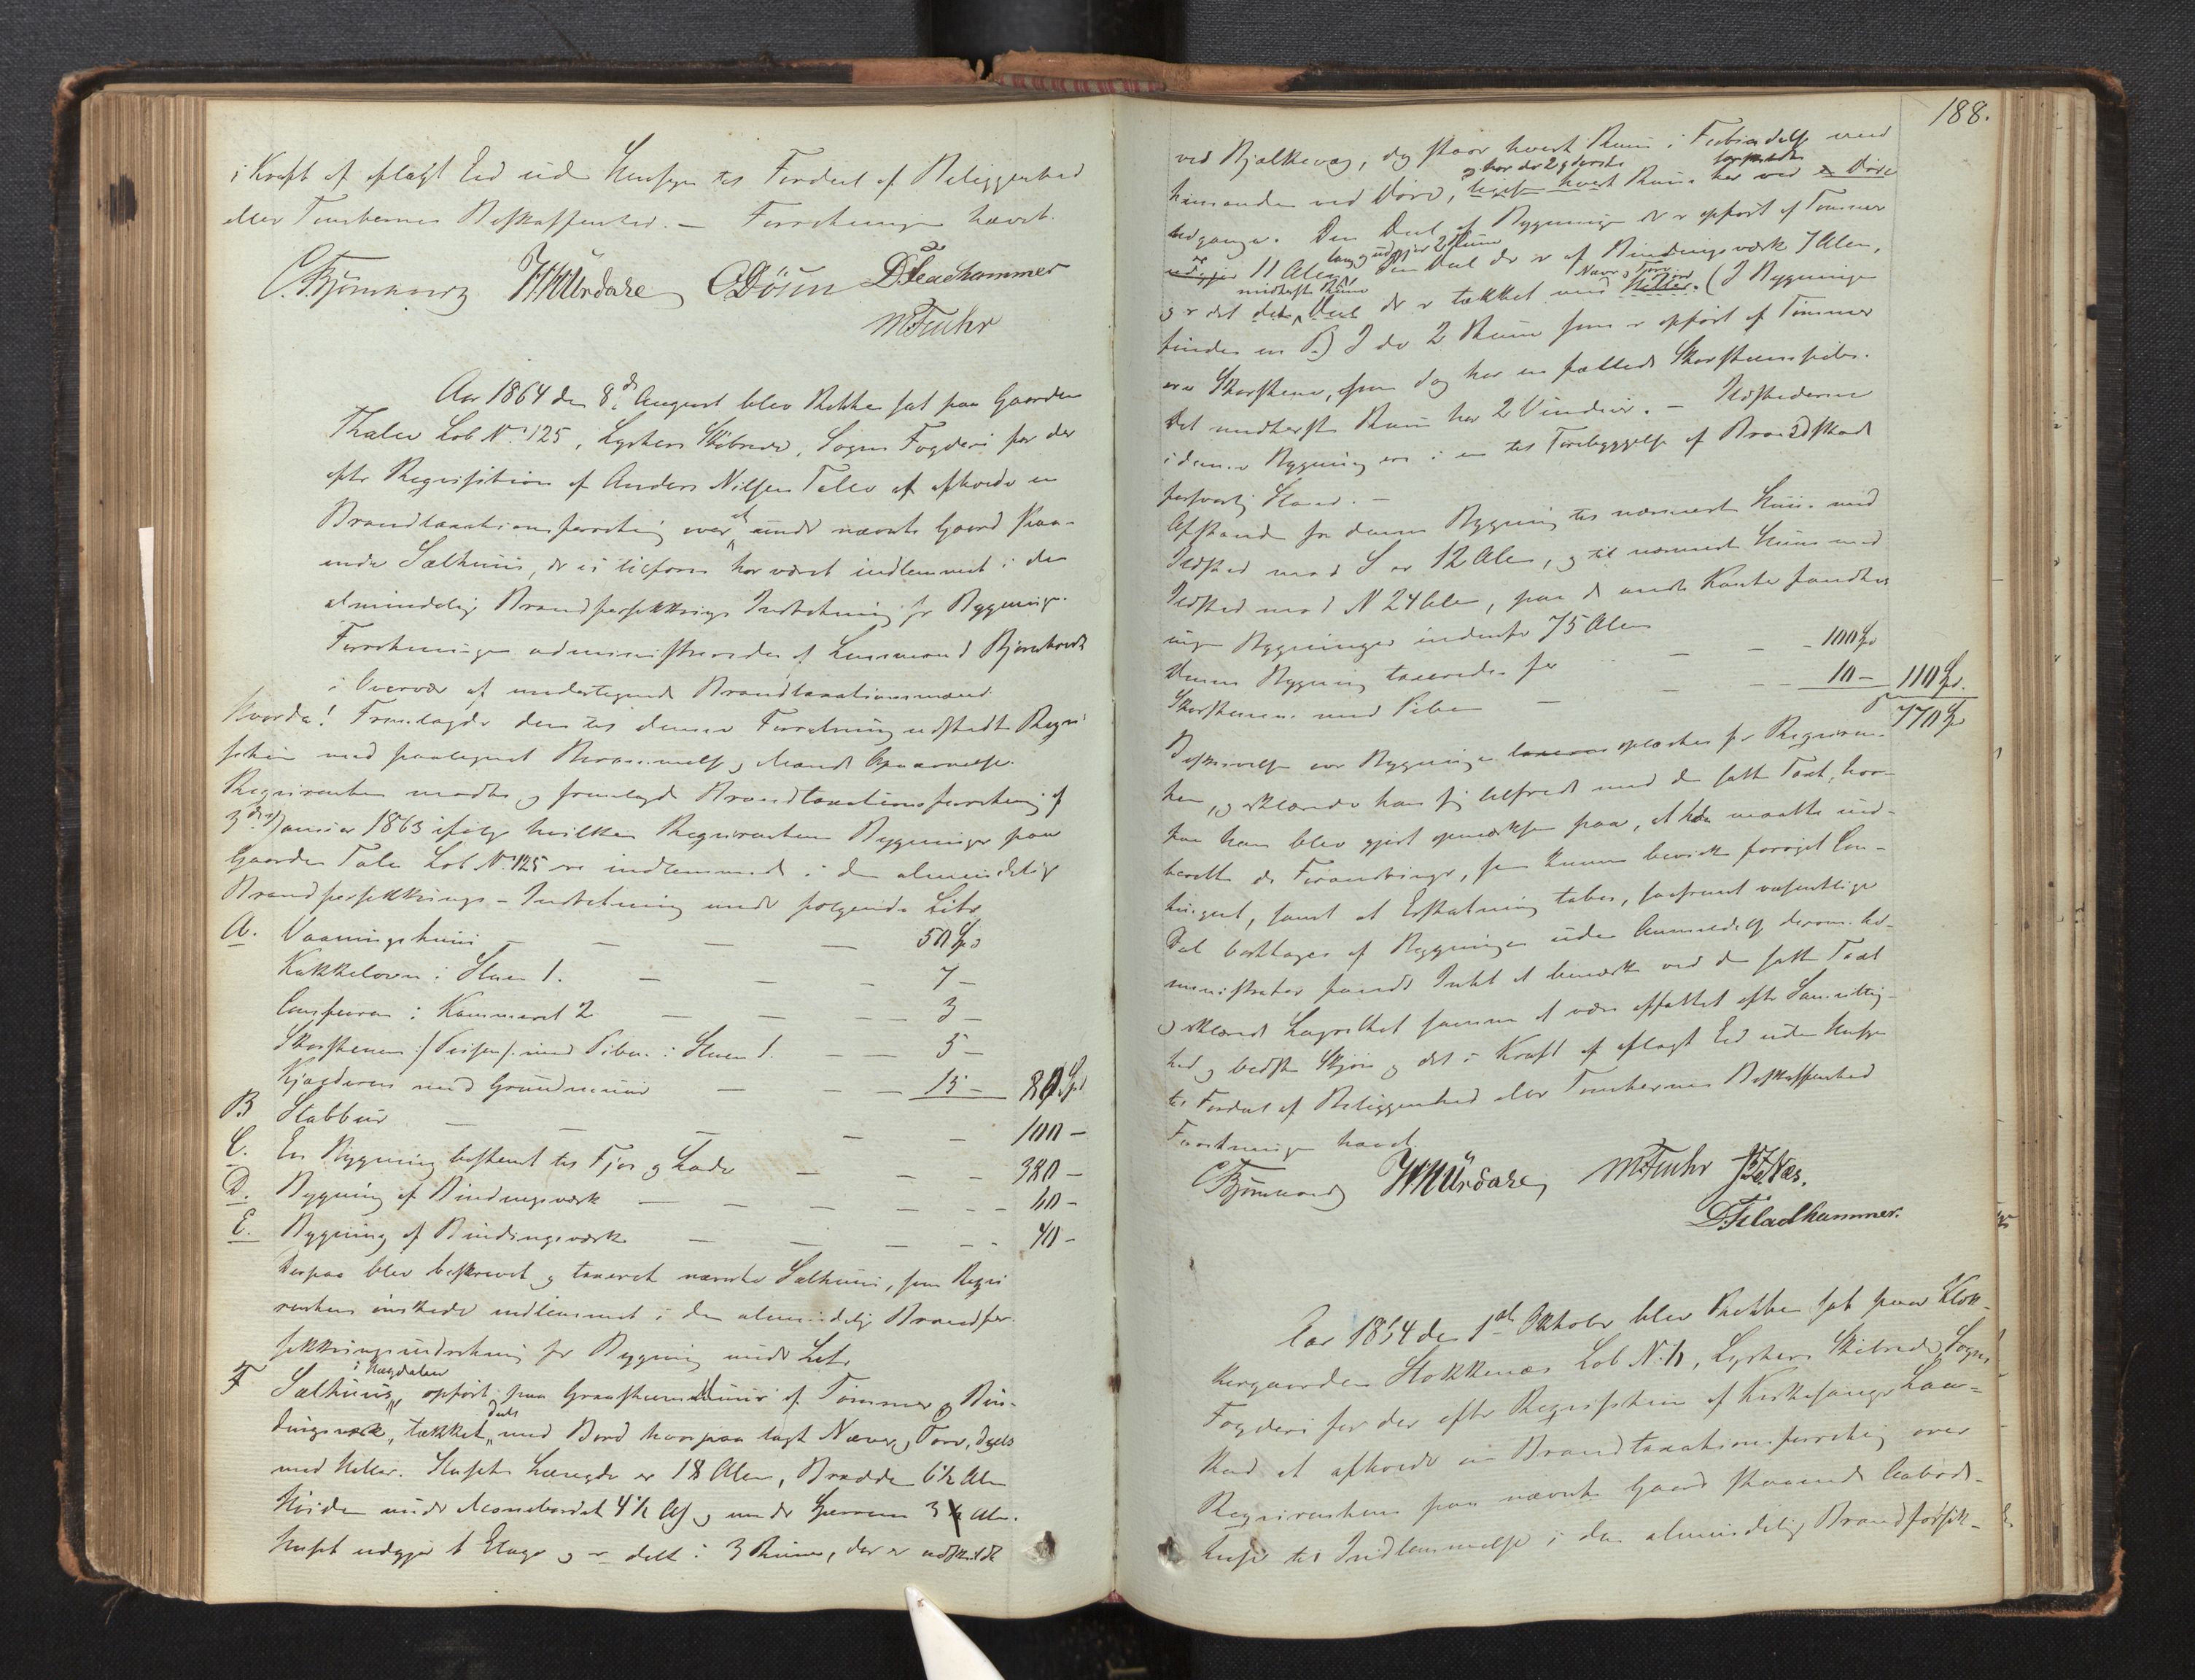 i Kraft af aflagt Eed uden Hensyn til Fordeel af Beliggenhed
eller Tomternes Beskaffenhed. — Forretningen hævet.
C. Bjørnkarz HMUrdahl CDösen DFladhammer
MFuhr
Aar 1864 den 8de August blev Retten sat paa Gaarden
Thalev Løb No 125, Lysters Skibrede, Sogns Fogderi for der
efter Requisition af Anders Nilsen Talev at afholde en
Brandtaxationsforretning over et under nævnte Gaard staa-
ende Sælhuus, der ei tilforn har været indlemmet i den
almindelig Brandforsikkrings Indretning for Bygninger.
Forretningen administreredes af Lensmand
i Overvær af undertegnede Brandtaxationsmænd.
Hvorda! Fremlagdes den til denne Forretning udstedte Requi
sition med paategnet Berammelse og Mænds Opnævnelse.
Requirenten mødte og fremlagde Brandtaxationsforretning af
3die Januar 1863 ifølge hvilken Requirentens Bygninger paa
Gaarden Tale Løb No 125 ere indlemmede i den almindelige
Brandforsikkrings-Indretning under følgende Litr.
A. Vaaningshuus — — — — 50 Spd
Kakkelovn i Stuen 1. — — — 7 —
Komfuren i Kammeret 2 — — — 3 —
Skorstenen /: Peisen :/ med Piben i Stuen 1. — — 5 —
Kjælderen med Grundmuur — — 15 — 80 Spd
B Stabbur — — — — — 100 —
C. En Bygning bestemt til Fjøs og Lade — — — 380 —
D. Bygning af Bindingsværk — — — — — 60 —
E. Bygning af Bindingsværk — — — — — 40 —
Derpaa blev beskrevet og taxeret nævnte Sælhuus, som Requi
renten ønskede indlemmet i den almindelig Brandfor-
sikkringsindretning for Bygning under Litr.
F Sælhuus, opført paa Graasteensmuur af Tømmer og Bin-
dingsværk, tækket deels med Bord hvorpaa lagt Næver og Torv, deels
med Heller. Husets Længde er 18 Alen, Bredde 6½ Alen
Høiden under Mønebordet 4½ Al og under Sperren 3 Alen.
Huset udgjør 1 Etage og er delt i 3 Rum, der er adskildte
188.
ved Bjælkevæg, dog staar hvert Rum i Forbindelse med
hinanden ved Døre, og har de 2 yderste Rum har ved en Dør
Udgange. Den Deel af Bygningen der er opført af Tømmer
er 11 Alen lang og udgjør 2 Rum Den Deel der er af Bindingsværk 7 Alen,
og er det midterste Rum der er tækket med Næver og Torv Heller. (I Bygningen
findes en B.) I de 2 Rum som er opført af Tømmer
ere Skorstene, som dog har en fælleds Skorsteenspibe.
Det midterste Rum har 2 Vinduer. — Ildstederne
i denne Bygning ere i en til Forebyggelse af Brandskade
forsvarlig Stand. —
Afstanden fra denne Bygning til nærmeste Huus med
Ildsted mod S er 12 Alen, og til nærmeste Huus med
Ildsted mod N 24 Alen, paa de andre Kanter fandtes
ingen Bygninger indenfor 75 Alen
Denne Bygning taxeredes for — — — 100 Spd
Skorstenene med Piber — — — 10 — 110 Spd.
770 Spd
Beskrivelsen over Bygningen oplæstes for Requiren-
ten, og erklærede han sig tilfreds med den satte Taxt, hvor-
hos han blev gjort opmærksom paa, at han maatte ind-
berette de Forandringer, som kunne bevirke forøget Con-
tingent, samt at Erstatning tabes, saafremt væsentlige
Del borttages af Bygningen uden Anmeldelse derom. Ad-
ministrator fandt Intet at bemærke ved den satte Taxt
og erklærede Lagrettet samme at være affattet efter Samvittig-
hed og bedste Skjøn og det i Kraft af aflagt Eed uden Hensyn
til Fordeel af Beliggenhed eller Tomternes Beskaffenhed
Forretningen hævet.
HMUrdahl MFuhr
DFladhammer.
Aar 1864 den 1ste Oktober blev Retten sat paa Klok-
kergaarden Stokkenæs Løb No 6, Lysters Skibrede Sogns
Fogderi for der efter Requisition af Kirkesanger
at afholde en Brandtaxationsforretning over
Requirentens paa nævnte Gaard staaende Aabods-
huse til Indlemmelse i den almindelig Brandforsik-